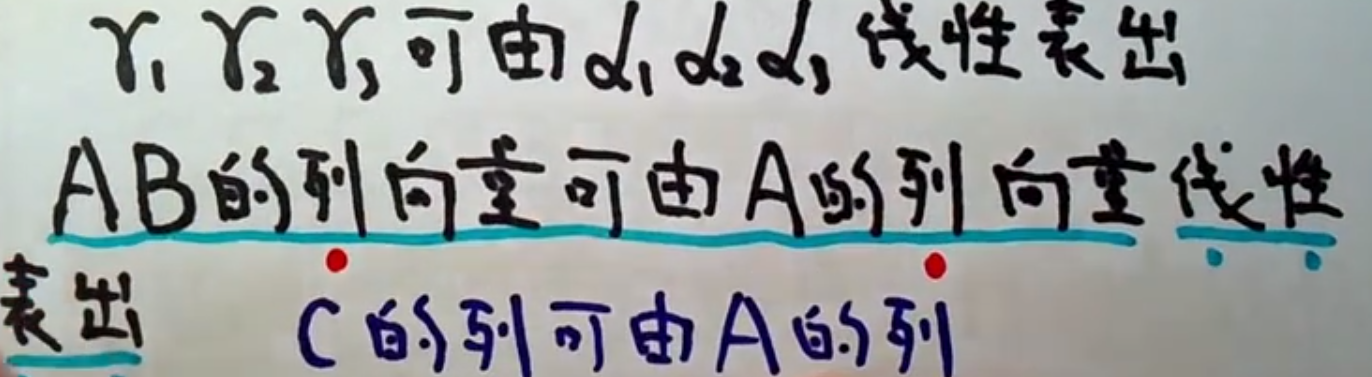 γ₁ γ₂ γ₃ 可由 α₁ α₂ α₃ 线性表出
AB的列向量可由A的列向量线性
表出
C的列可由A的列